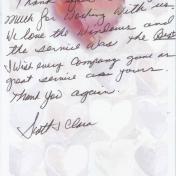 Thank you so
much for working with us.
We love the windows and
the service was the Best
I wish every company gave as
great service as yours.
Thank you again.
Scott & Clara